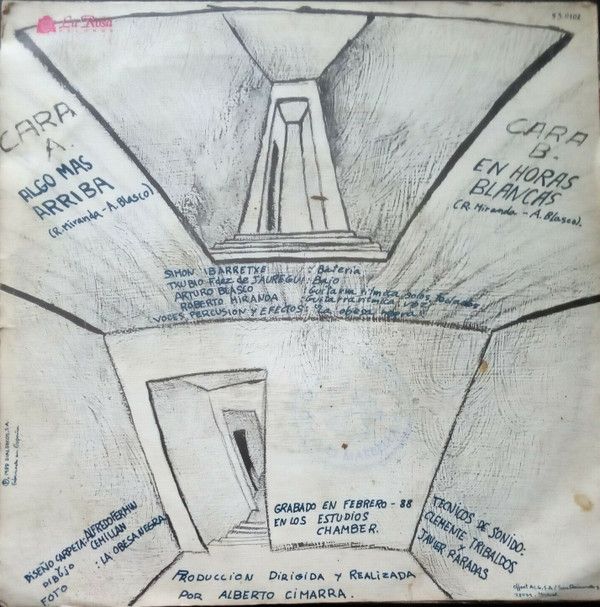 La Rosa
RECORDS
CARA
A.
ALGO MAS
ARRIBA
(R. Miranda - A. Blasco).
CARA
B.
EN HORAS
BLANCAS
(R. Miranda - A. Blasco).
SIMON IBARRETXE : Batería
TXUBIO Fdez de SAUREGUI : Bajo
ARTURO BLASCO : Guitarra rítmica solos
ROBERTO MIRANDA : Guitarra rítmica y voz
VOCES PERCUSION Y EFECTOS : "La obesa negra"
DISEÑO CARPETA: ALFREDO FERMIN
DIBUJO CEMILLAN
FOTO : LA OBESA NEGRA
GRABADO EN FEBRERO - 88
EN LOS ESTUDIOS
CHAMBER.
TECNICOS DE SONIDO:
CLEMENTE TRIBALDOS
Y
JAVIER PARADAS
PRODUCCION DIRIGIDA Y REALIZADA
POR ALBERTO CIMARRA.